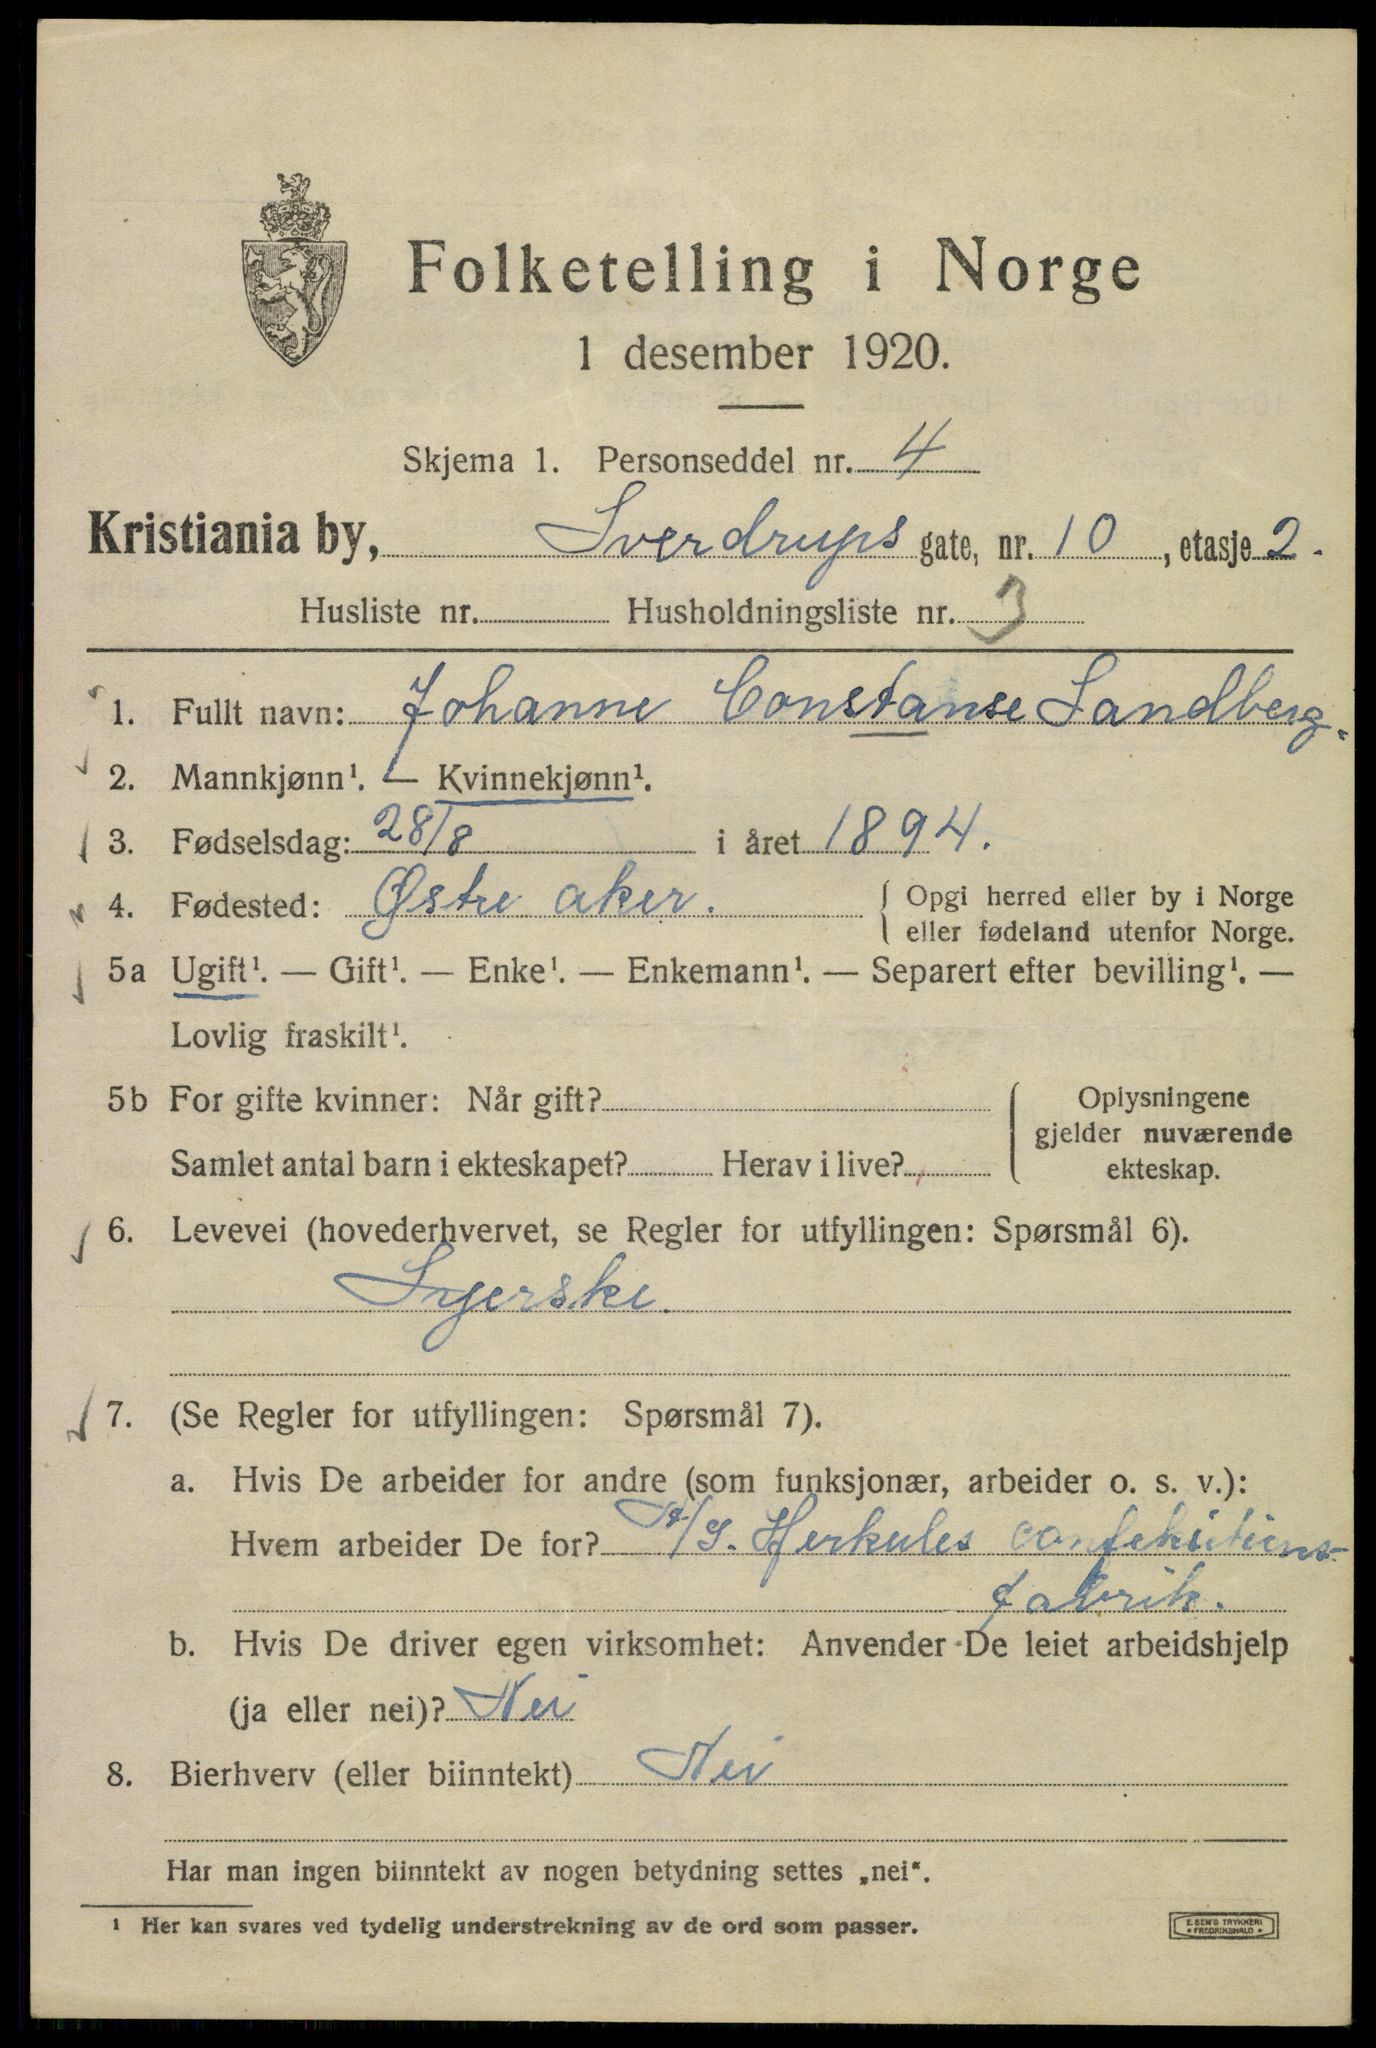 Folketelling i Norge
1 desember 1920.
Skjema 1. Personseddel nr. 4
Kristiania by, Sverdrups gate, nr. 10, etasje 2.
Husliste nr. Husholdningsliste nr. 3
1. Fullt navn: Johanne Constanse Sandberg.
2. Mannkjønn¹. — Kvinnekjønn¹.
3. Fødselsdag: 28/8 i året 1894.
4. Fødested: Østre aker. { Opgi herred eller by i Norge
eller fødeland utenfor Norge.
5a Ugift¹. — Gift¹. — Enke¹. — Enkemann¹. — Separert efter bevilling¹. —
Lovlig fraskilt¹.
5b For gifte kvinner: Når gift? Oplysningene
gjelder nuværende
Samlet antal barn i ekteskapet? Herav i live? ekteskap.
6. Levevei (hovederhvervet, se Regler for utfyllingen: Spørsmål 6).
Syerske.
7. (Se Regler for utfyllingen: Spørsmål 7).
a. Hvis De arbeider for andre (som funksjonær, arbeider o. s. v.):
Hvem arbeider De for? A/S. Herkules
fabrik.
b. Hvis De driver egen virksomhet: Anvender De leiet arbeidshjelp
(ja eller nei)? Nei
8. Bierhverv (eller biinntekt) Nei
Har man ingen biinntekt av nogen betydning settes „nei“.
¹ Her kan svares ved tydelig understrekning av de ord som passer.
E. SEM'S TRYKKERI
* FREDRIKSHALD *